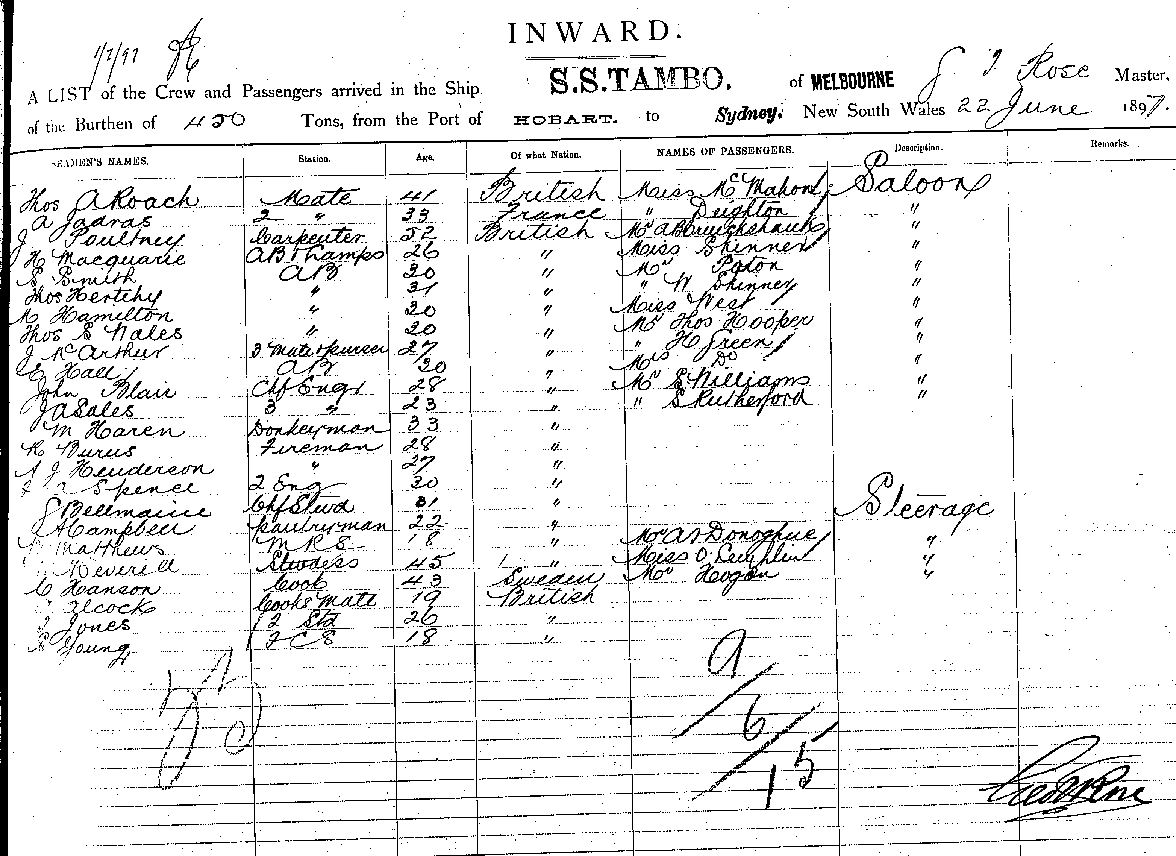 INWARD.
1/7/97
A LIST of the Crew and Passengers arrived in the Ship S.S. TAMBO. of MELBOURNE J Rose Master,
of the Burthen of 450 Tons, from the Port of HOBART. to Sydney. New South Wales 22 June 1897.
SEAMEN'S NAMES. Station. Age. Of what Nation. NAMES OF PASSENGERS. Description. Remarks.
Thos A Roach Mate 41 British Miss McMahon Saloon
A 2 " 33 France " Deighton "
J Poultney Carpenter 52 British Mr "
H Macquarie AB & Lamps 26 " Miss Skinner "
S Smith AB 20 " Mr Paton "
Thos Hertchy " 31 " " W Skinner "
M Hamilton " 20 " Miss West "
Thos S Wales " 20 " Mr Thos Hooper "
J McArthur 3 Mate & purser 27 " " H Green "
E Hall AB 30 " Mrs Do "
John Blair Chf Engr 28 " Mr S Williams "
J A Sales 3 " 23 " " S Rutherford "
M Haren Donkeyman 33 "
Burus Fireman 28 "
A J Henderson " 27 "
Spence 2 Eng 30 "
Bellmaine Chf Stwd 31 " Steerage
A Campbell pantryman 22 "
Matthews M R S 18 " Donoghue "
Neverell Stwdess 45 " Miss "
C Hanson Cook 43 Sweden Mr Hogan "
Alcock Cooks Mate 19 British
Jones 2 Std 26 "
S Young 2 C S 18 "
23
9
6
15